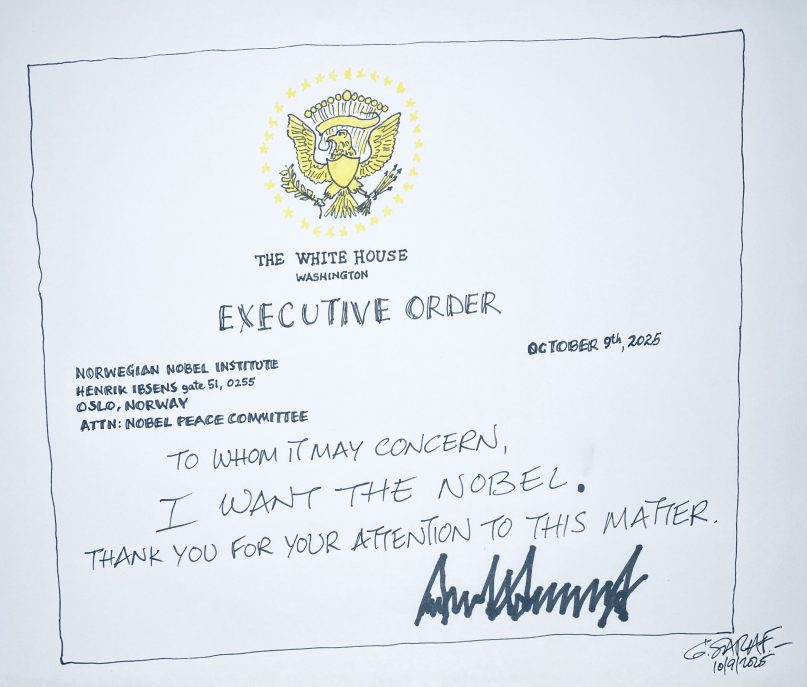 THE WHITE HOUSE
WASHINGTON
EXECUTIVE ORDER
OCTOBER 9th, 2025
NORWEGIAN NOBEL INSTITUTE
HENRIK IBSENS gate 51, 0255
OSLO, NORWAY
ATTN: NOBEL PEACE COMMITTEE
TO WHOM IT MAY CONCERN,
I WANT THE NOBEL.
THANK YOU FOR YOUR ATTENTION TO THIS MATTER.
G. SARAF.
10/9/2025